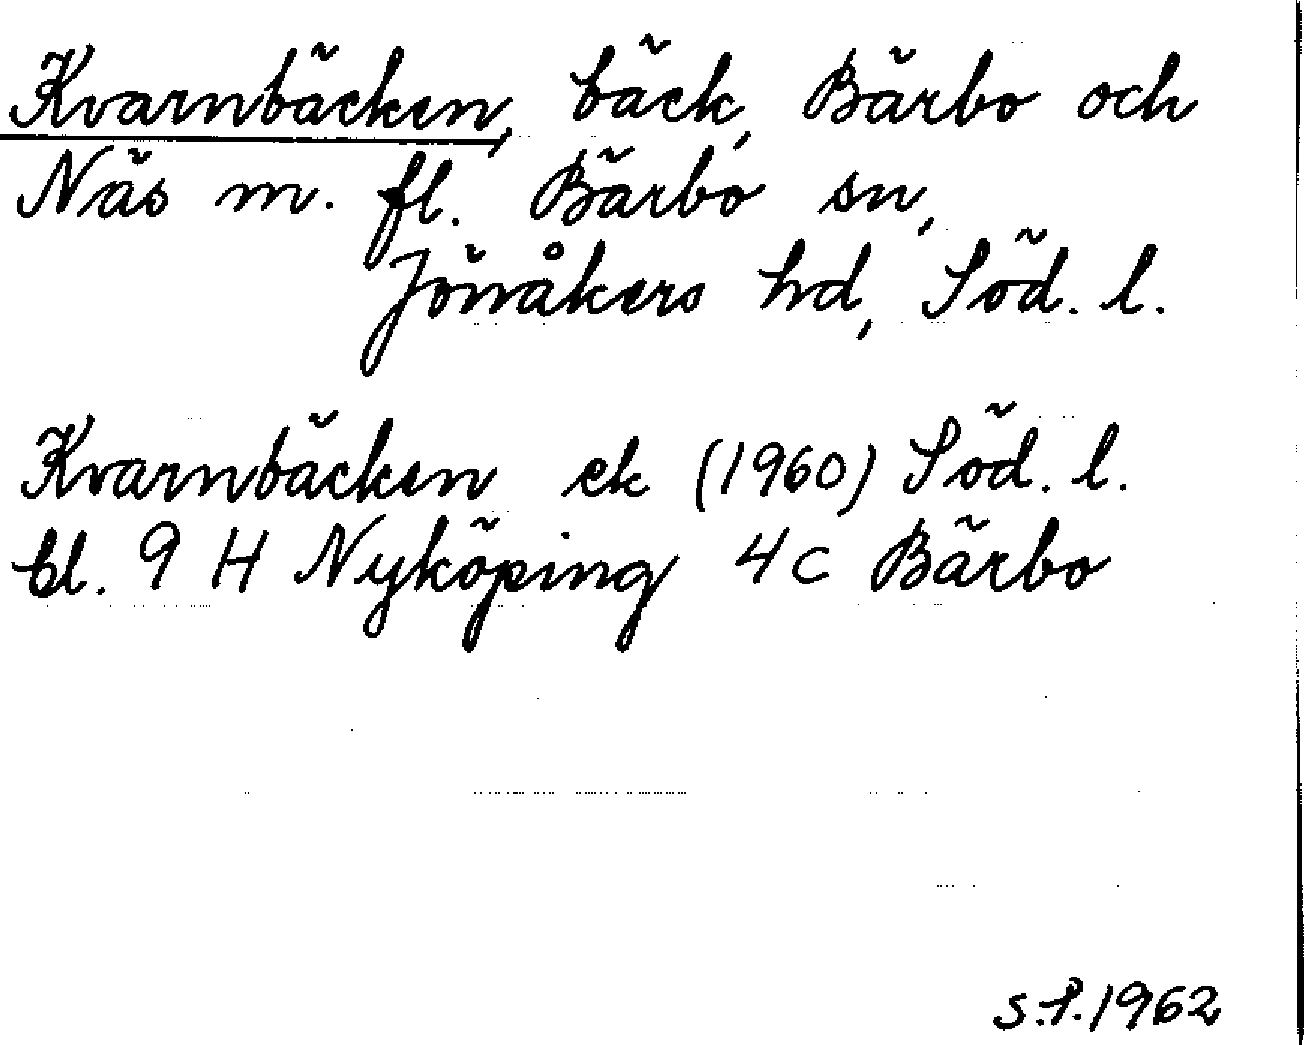 Kvarnbäcken, bäck, Bärbo och
Näs m. fl. Bärbo sn,
Jönåkers hd, Söd. l.
Kvarnbäcken ek (1960) Söd. l.
bl. 9 H Nyköping 4 c Bärbo
S.P. 1962